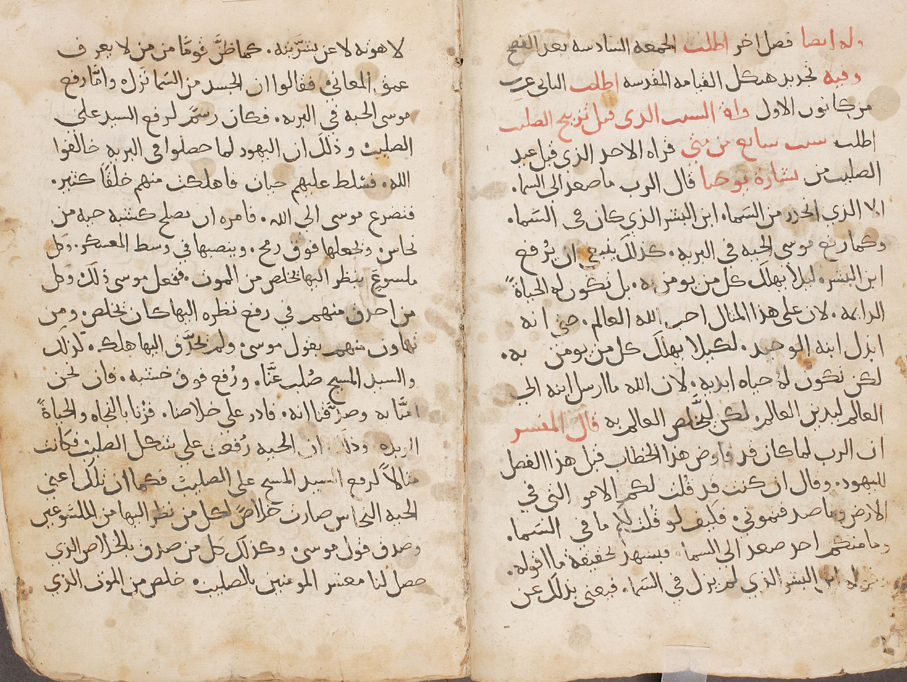 وله ايضا فصل اخر اطلب الجمعه السادسه بعد الفصح
وفيه تجديد هيكل القيامه المقدسه اطلب الثاني عشر
من كانون الاول واقرا السبت الذي قبل تزييح الصليب
اطلب سبت سابع من متى قراه الاحد الذي قبل عيد
الصليب من بشارة يوحنا قال الرب ما صعد الى السما
الا الذي انحدر من السماء ابن البشر الذي كان في السماء
وكما رفع موسى الحيه في البريه كذلك ينبغي ان يرفع
ابن البشر ليلا يهلك كل من يومن به بل تكون له الحياة
الدايمه لان على هذا المثال احب الله العالم حتى انه
ابذل ابنه الوحيد لكيلا يهلك كل من يومن به
لكن تكون له حياه ابديه لان الله ما ارسل ابنه الى
العالم ليدين العالم لكن ليخلص العالم به قال المفسر
ان الرب لما كان قد فاوض هذا الخطاب قبل هذا الفصل
لليهود وقال ان كنت قد قلت لكم الامور التي في
الارض وما صدقتموني فكيف لو قلت لكم ما في السماء
وما منكم احد صعد الى السماء يشهد لحقيقة ما اقوله
قوله ابن البشر الذي لم يزل في السماء فيعني بذلك عن
لاهوته لا عن بشريته كما ظن قوما من من لا يعرف
عمق المعاني فقالوا ان الجسد من السما نزل واما رفع
موسى الحيه في البريه فكان رسم لرفع السيد على
الصليب وذلك ان اليهود لما حصلوا في البريه خالفوا
الله فسلط عليهم حيات فاهلكت منهم خلقا كثير
فتضرع موسى الى الله فامره ان يصلح كشبه حيه من
نحاس ويجعلها فوق رمح وينصبها في وسط المعسكر وكل
ملسوع ينظر اليها يخلص من الموت ففعل موسى ذلك وكل
من احدق منهم في رفع نظره اليها كان يخلص ومن
تهاون منهم بقول موسى ولم يحدق اليها هلك كذلك
والسيد المسيح صلب عنا ورفع فوق خشبه فان نحن
امنا به وصدقنا انه قادر على خلاصنا فزنا بالنجاه والحياة
وذلك ان الحيه رفعت على شكل الصليب فكانت
مثالا لرفع السيد المسيح على الصليب فكما ان تلك اعني
الحيه النحاس صارت خلاص لكل من نظر اليها من الملسوعين
وصدق قول موسى وكذلك كل من صدق بالخلاص الذي
حصل لنا معشر المومنين بالصليب خلص من الموت الذي